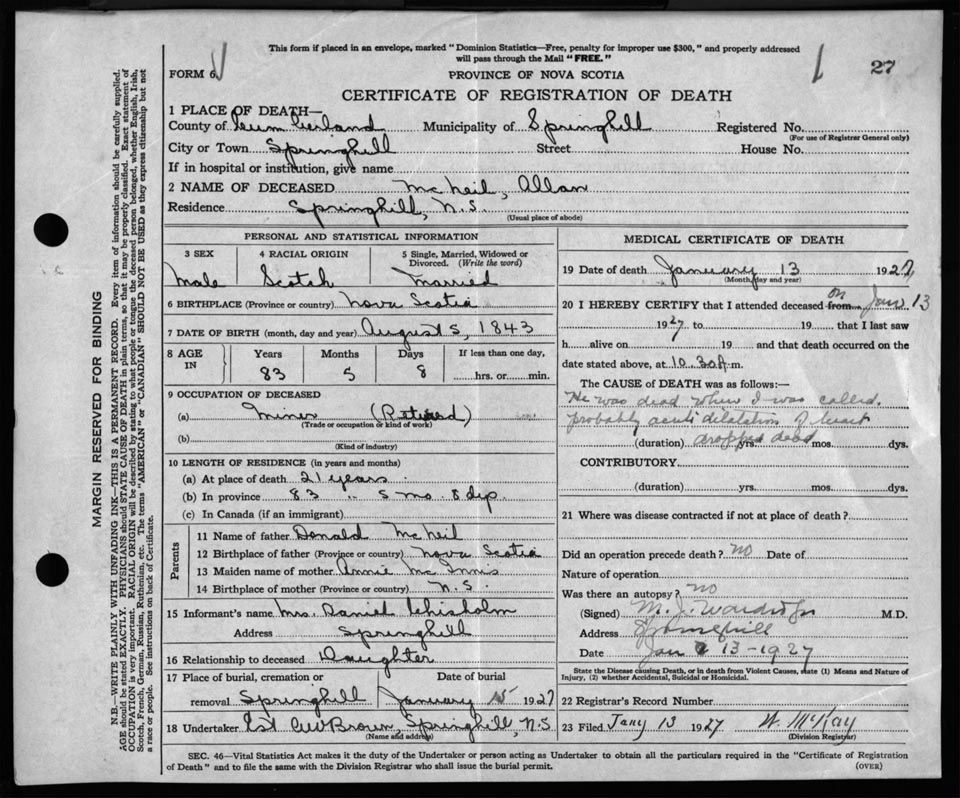 This form if placed in an envelope, marked "Dominion Statistics—Free, penalty for improper use $300," and properly addressed
will pass through the Mail "FREE."
27
FORM 6
PROVINCE OF NOVA SCOTIA
CERTIFICATE OF REGISTRATION OF DEATH
1 PLACE OF DEATH—
County of Cumberland Municipality of Springhill Registered No.
(For use of Registrar General only)
City or Town Springhill Street House No.
If in hospital or institution, give name
2 NAME OF DECEASED McNeil, Allan
Residence Springhill, N.S.
(Usual place of abode)
PERSONAL AND STATISTICAL INFORMATION
3 SEX 4 RACIAL ORIGIN 5 Single, Married, Widowed or Divorced. (Write the word)
Male Scotch Married
6 BIRTHPLACE (Province or country) Nova Scotia
7 DATE OF BIRTH (month, day and year) August 5, 1843
8 AGE IN Years Months Days If less than one day,
83 5 8 hrs. or min.
9 OCCUPATION OF DECEASED
(a) Miner (Retired)
(Trade or occupation or kind of work)
(b)
(Kind of industry)
10 LENGTH OF RESIDENCE (in years and months)
(a) At place of death 21 years
(b) In province 83 " 5 mo. 8 dys.
(c) In Canada (if an immigrant)
Parents
11 Name of father Donald McNeil
12 Birthplace of father (Province or country) Nova Scotia
13 Maiden name of mother Annie McInnis
14 Birthplace of mother (Province or country) N.S.
15 Informant's name Mrs. Daniel Chisholm
Address Springhill
16 Relationship to deceased Daughter
17 Place of burial, cremation or removal Date of burial
Springhill January 15 1927
18 Undertaker Est AW Brown, Springhill, N.S
(Name and address)
MEDICAL CERTIFICATE OF DEATH
19 Date of death January 13 1927
(Month, day and year)
20 I HEREBY CERTIFY that I attended deceased from on Jan 13
1927 to 19 that I last saw
h alive on 19 and that death occurred on the
date stated above, at 10.30 A m.
The CAUSE of DEATH was as follows:—
He was dead when I was called.
probably acute dilatation of heart
(duration) dropped dead yrs. mos. dys.
CONTRIBUTORY
(duration) yrs. mos. dys.
21 Where was disease contracted if not at place of death?
Did an operation precede death? no Date of
Nature of operation
Was there an autopsy? no
(Signed) M. J. Wardrope M.D.
Address Springhill
Date Jan 13-1927
State the Disease causing Death, or in death from Violent Causes, state (1) Means and Nature of
Injury, (2) whether Accidental, Suicidal or Homicidal.
22 Registrar's Record Number
23 Filed Jany 13 1927 W. McKay
(Division Registrar)
SEC. 46—Vital Statistics Act makes it the duty of the Undertaker or person acting as Undertaker to obtain all the particulars required in the "Certificate of Registration
of Death" and to file the same with the Division Registrar who shall issue the burial permit.
(OVER)
MARGIN RESERVED FOR BINDING
N.B.—WRITE PLAINLY WITH UNFADING INK—THIS IS A PERMANENT RECORD. Every item of information should be carefully supplied.
AGE should be stated EXACTLY. PHYSICIANS should STATE CAUSE OF DEATH in plain terms, so that it may be properly classified. Exact statement of
OCCUPATION is very important. RACIAL ORIGIN will be described by stating to what people or tongue the deceased person belonged, whether English, Irish,
Scotch, French, German, Russian, Ruthenian, etc. The terms "AMERICAN" or "CANADIAN" SHOULD NOT BE USED as they express citizenship but not
a race or people. See instructions on back of Certificate.